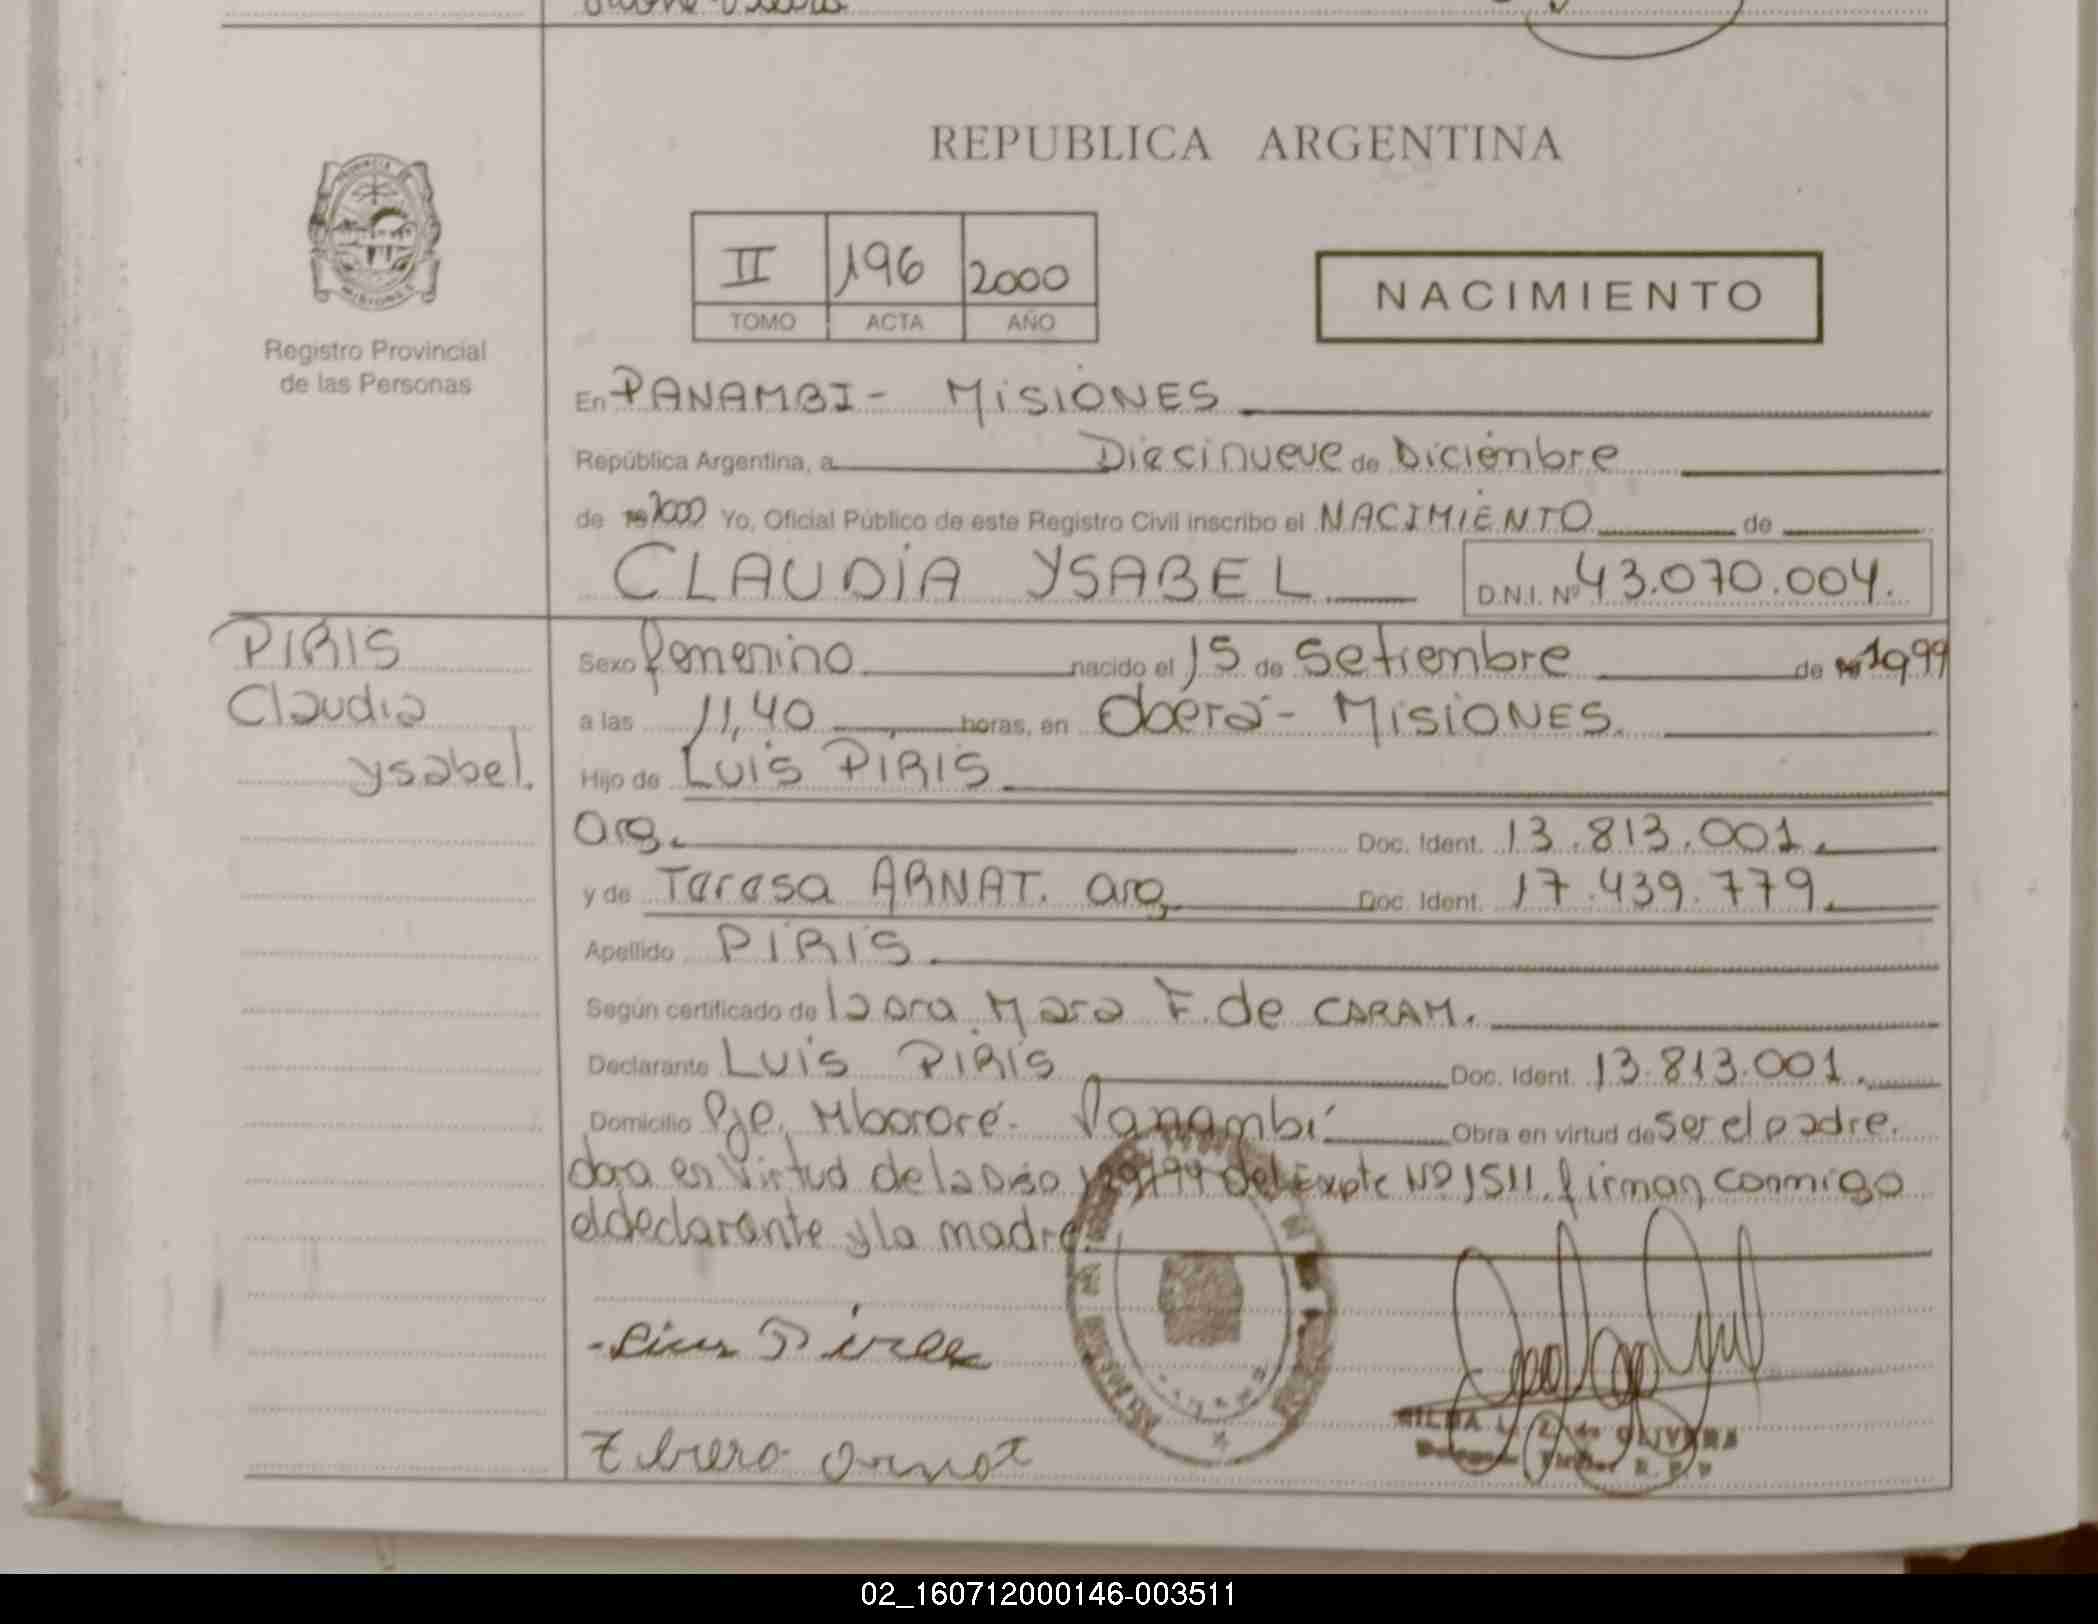 REPUBLICA ARGENTINA
II 196 2000
TOMO ACTA AÑO
NACIMIENTO
PROVINCIA DE
MISIONES
Registro Provincial
de las Personas
En PANAMBI - MISIONES
República Argentina, a Diecinueve de Diciembre
de 2000 Yo, Oficial Público de este Registro Civil inscribo el NACIMIENTO de
CLAUDIA YSABEL D.N.I. Nº 43.070.004.
PIRIS
Claudia
Ysabel.
Sexo femenino nacido el 15 de Setiembre de 1999
a las 11,40 horas, en Oberá - MISIONES.
Hijo de Luis PIRIS
Arg. Doc. Ident. 13.813.001.
y de Teresa ARNAT. arg Doc. Ident. 17.439.779.
Apellido PIRIS
Según certificado de la Dra. Mara F. de CARAM.
Declarante Luis PIRIS Doc. Ident. 13.813.001.
Domicilio Pje. Mbororé - Panambí Obra en virtud de ser el padre.
en virtud de la del Expte Nº 1511. firman conmigo
el declarante y la madre.
de OLIVERA
R. P. P
02_160712000146-003511